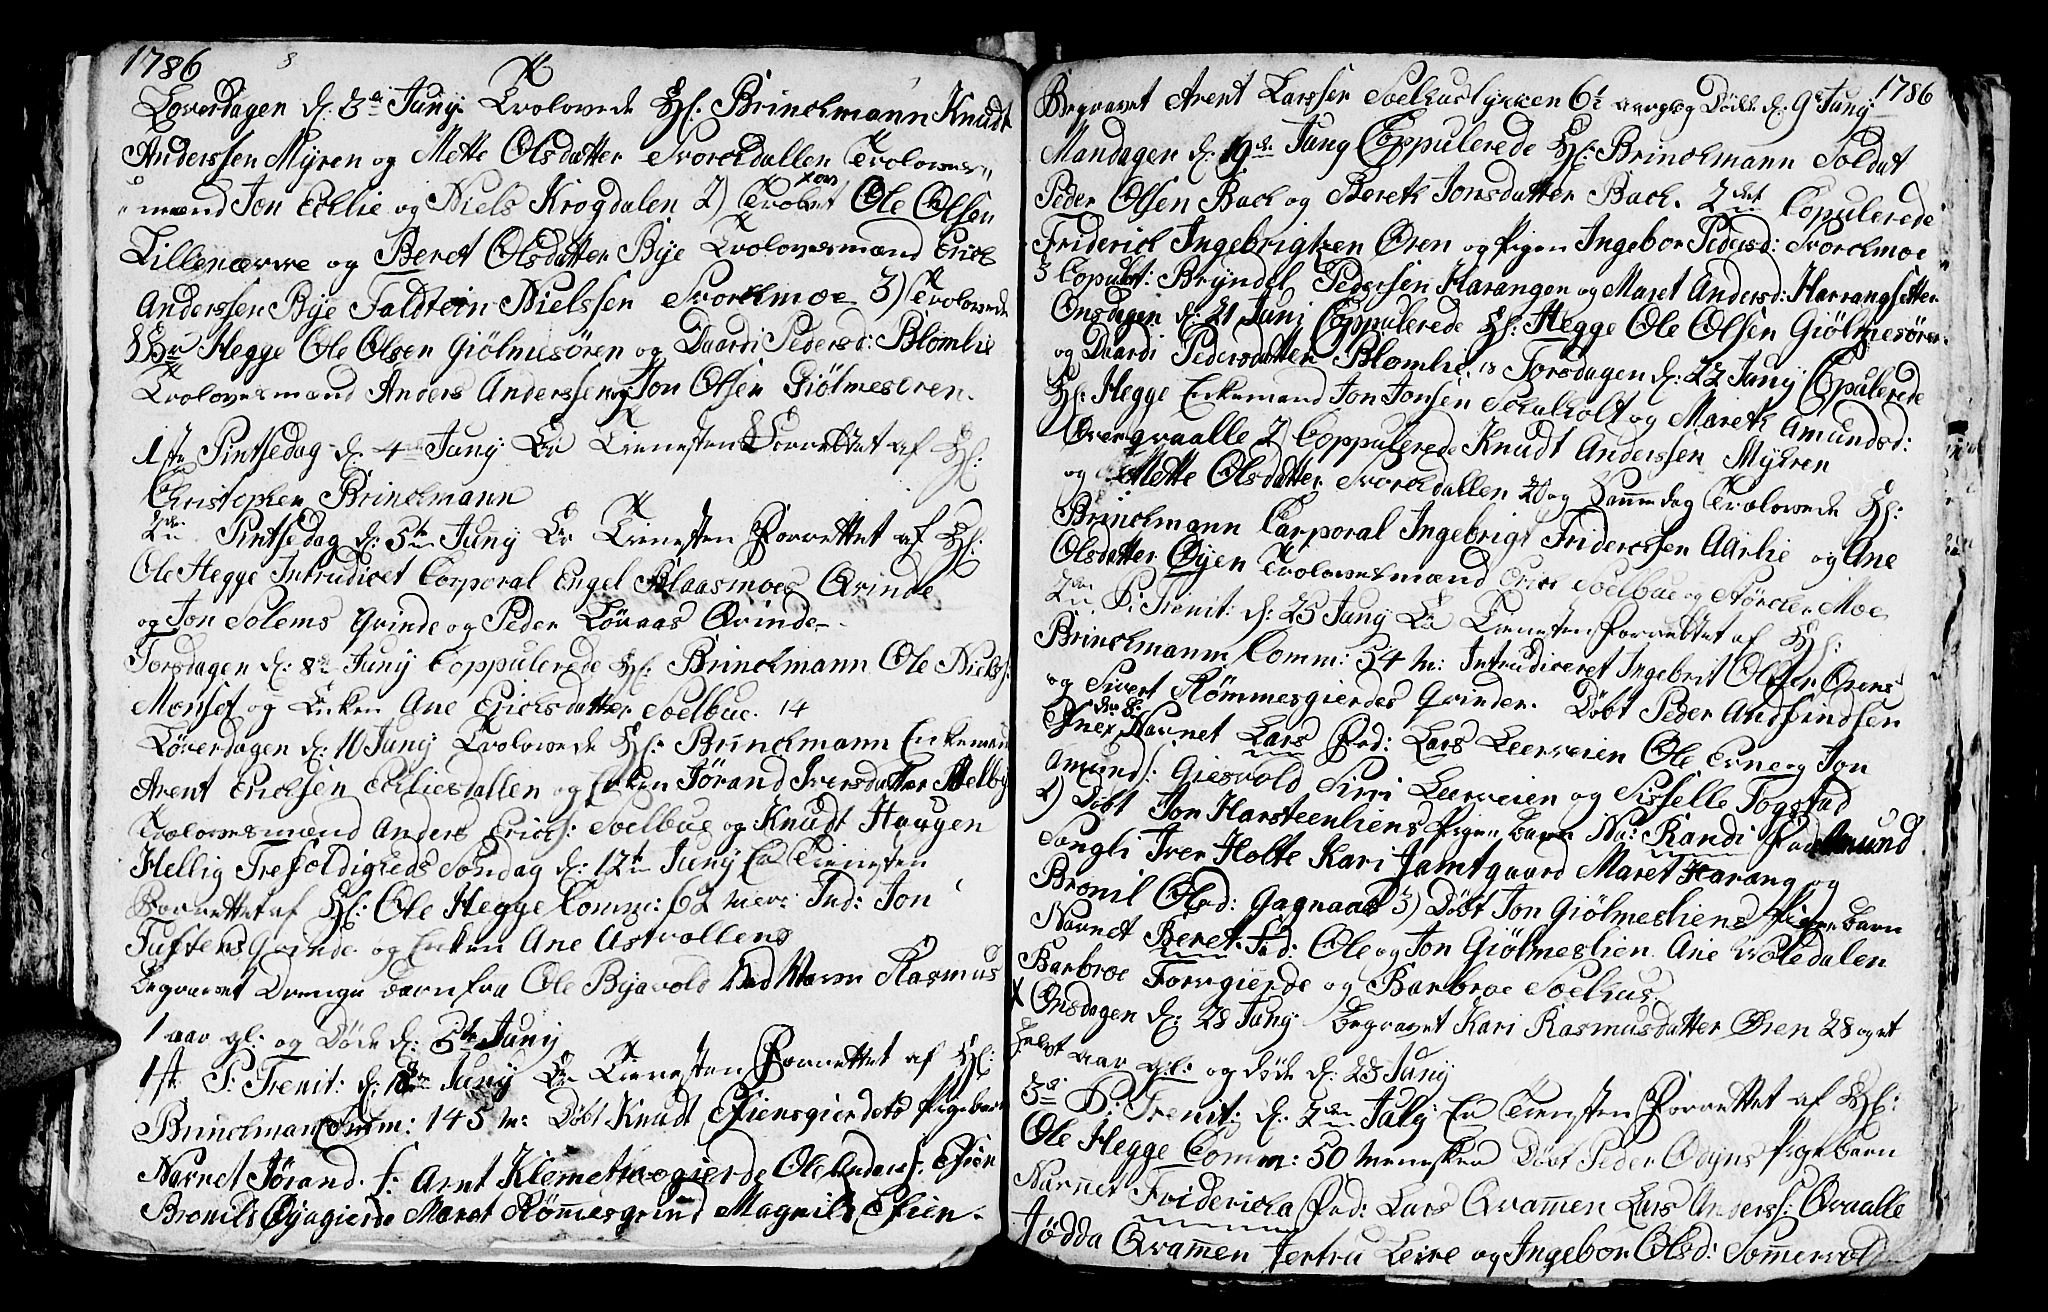 1786
Løverdagen d. 3de Juny Trolovede Hl: Brinchmann Knudt
Anderssen Myren og Mette Olsdatter Svorchdallen Trolovels
mænd Jon Echlie og Niels Krogdalen 2) Trolovet Ole Olsen
Lillenærre og Beret Olsdatter Bye Trolovesmænd Erich
Anderssen Bye Faldtein Nielssen Svorchmoe 3) Trolovede
Hr Hegge Ole Olsen Giølmesøren og Daardi Pedersd: Blomlie
Trolovesmænd Anders Anderssen og Jon Olsen Giølmesøren.
1ste Pintsedag d. 4de Juny Er Tienesten Forrettet af Hl:
Christopher Brinchmann
2den Pintsedag d: 5te Juny Er Tienesten Forrettet af Hl:
Ole Hegge Intrudicet Corporal Engel Klaasmoes Qvinde
og Jon Solems Qvinde og Peder Løraas Qvinde
Torsdagen d: 8de Juny Coppulerede Hl: Brinchmann Ole Niels:
Monset og Enken Ane Erichsdatter Soelbue. 14
Løverdagen d: 10 Juny Trolovede Hl: Brinchmann Enkeman
Arent Erichsen Echliesdallen og Enken Jørand Iversdatter Melby
Trolovesmænd Anders Erichs: Soelbue og Knudt Haugen
Hellig Trefoldigheds Søndag d: 12te Juny Er Tienesten
Forrettet af Hl: Ole Hegge Comm: 62 men: Ind: Jon
Tuftens Qvinde og Enken Ane Astvollens
Begravet Drenge barn fra Ole Byavold Ved Navn Rasmus
1 aar gl: og Døde d: 5te Juny
1ste S: Trenit: d: 18de Juny Er Tienesten Forrettet af Hl:
Brinchman Comm: 145 m: Døbt Knudt Eviensgierdets Pigebarn
Navnet Jørand. f: Arnt Klemetsvogierde Ole Anders: Evien
Bronild Øyagierde Maret Rømmesgrind Magnild Evien.
1786
Begravet Arent Larssen Soelhuslykken 6t aar og Døde d: 9de Juny
Mandagen d: 19de Juny Coppulerede Hl: Brinchmann Soldat
Peder Olsen Bach og Bereth Jonsdatter Bach. 2det Copulerede
Friderich Ingebrigtsen Øren og Pigen Ingebor Pedersd: Svorchmoe
3 Copulet: Bryndel Pedersen Harangen og Maret Andersd: Harrangsetter
Onsdagen d: 21 Juni Coppulerede Hl: Hegge Ole Olsen Giølmesøren
og Daardi Pedersdatter Blomlie, Torsdagen d: 22 Juny Copulerede
Hl: Hegge Enkemand Jon Jonsen Schalholt og Mareth Amundsd:
Overqvaalle 2) Coppulerede Knudt Anderssen Myhren
og Mette Olsdatter Svorchdallen og Samme dag Trolovede Hl:
Brinchmann Corporal Ingebrigt Friderchsen Aarlie og Ane
Olsdatter Øyen Trolovesmænd Erich Soelbue og Størcher Moe
2den S: Trenit: d: 25 Juny Er Tienesten Forrettet af Hl:
Brinchmann Comm: 54 m: Intrudiceret Ingebrit Olssen Ørens
og Sivert Rømmesgierdes Qvinder. Døbt Peder Andfindsen
Navnet Lars Fad: Lars Leerveien Ole Erne og Jon
Amunds: Giesvold Siri Leerveien og Sisselle Togstad
2) Døbt Jon Harsteenliens Pige barn Na: Randi Fad Amund
Songli Iver Holte Kari Jamtgaard Maret Harang og
Bronil Olsd: Gagnaas 3) Døbt Jon Giølmesliens Pige barn
Navnet Beret Fad: Ole og Jon Giølmeslien Ane Woledalen
Barbroe Forrgierde og Barbroe Soelhus
x Onsdagen d: 28 Juny begravet Kari Rasmusdatter Øren 28 og et
halvt aar gl: og døde d: 23 Juny
3de S: Trenit: d: 2den July Er Tienesten Forrettet af Hl:
Ole Hegge Comm: 50 Mennesker Døbt Peder Odyns Pige barn
Navnet Fridericha Fad: Lars Qvammen Lars Anderss: Qvaalle
Jødda Qvammen Jertru Leire og Ingebor Olsd: Somervold